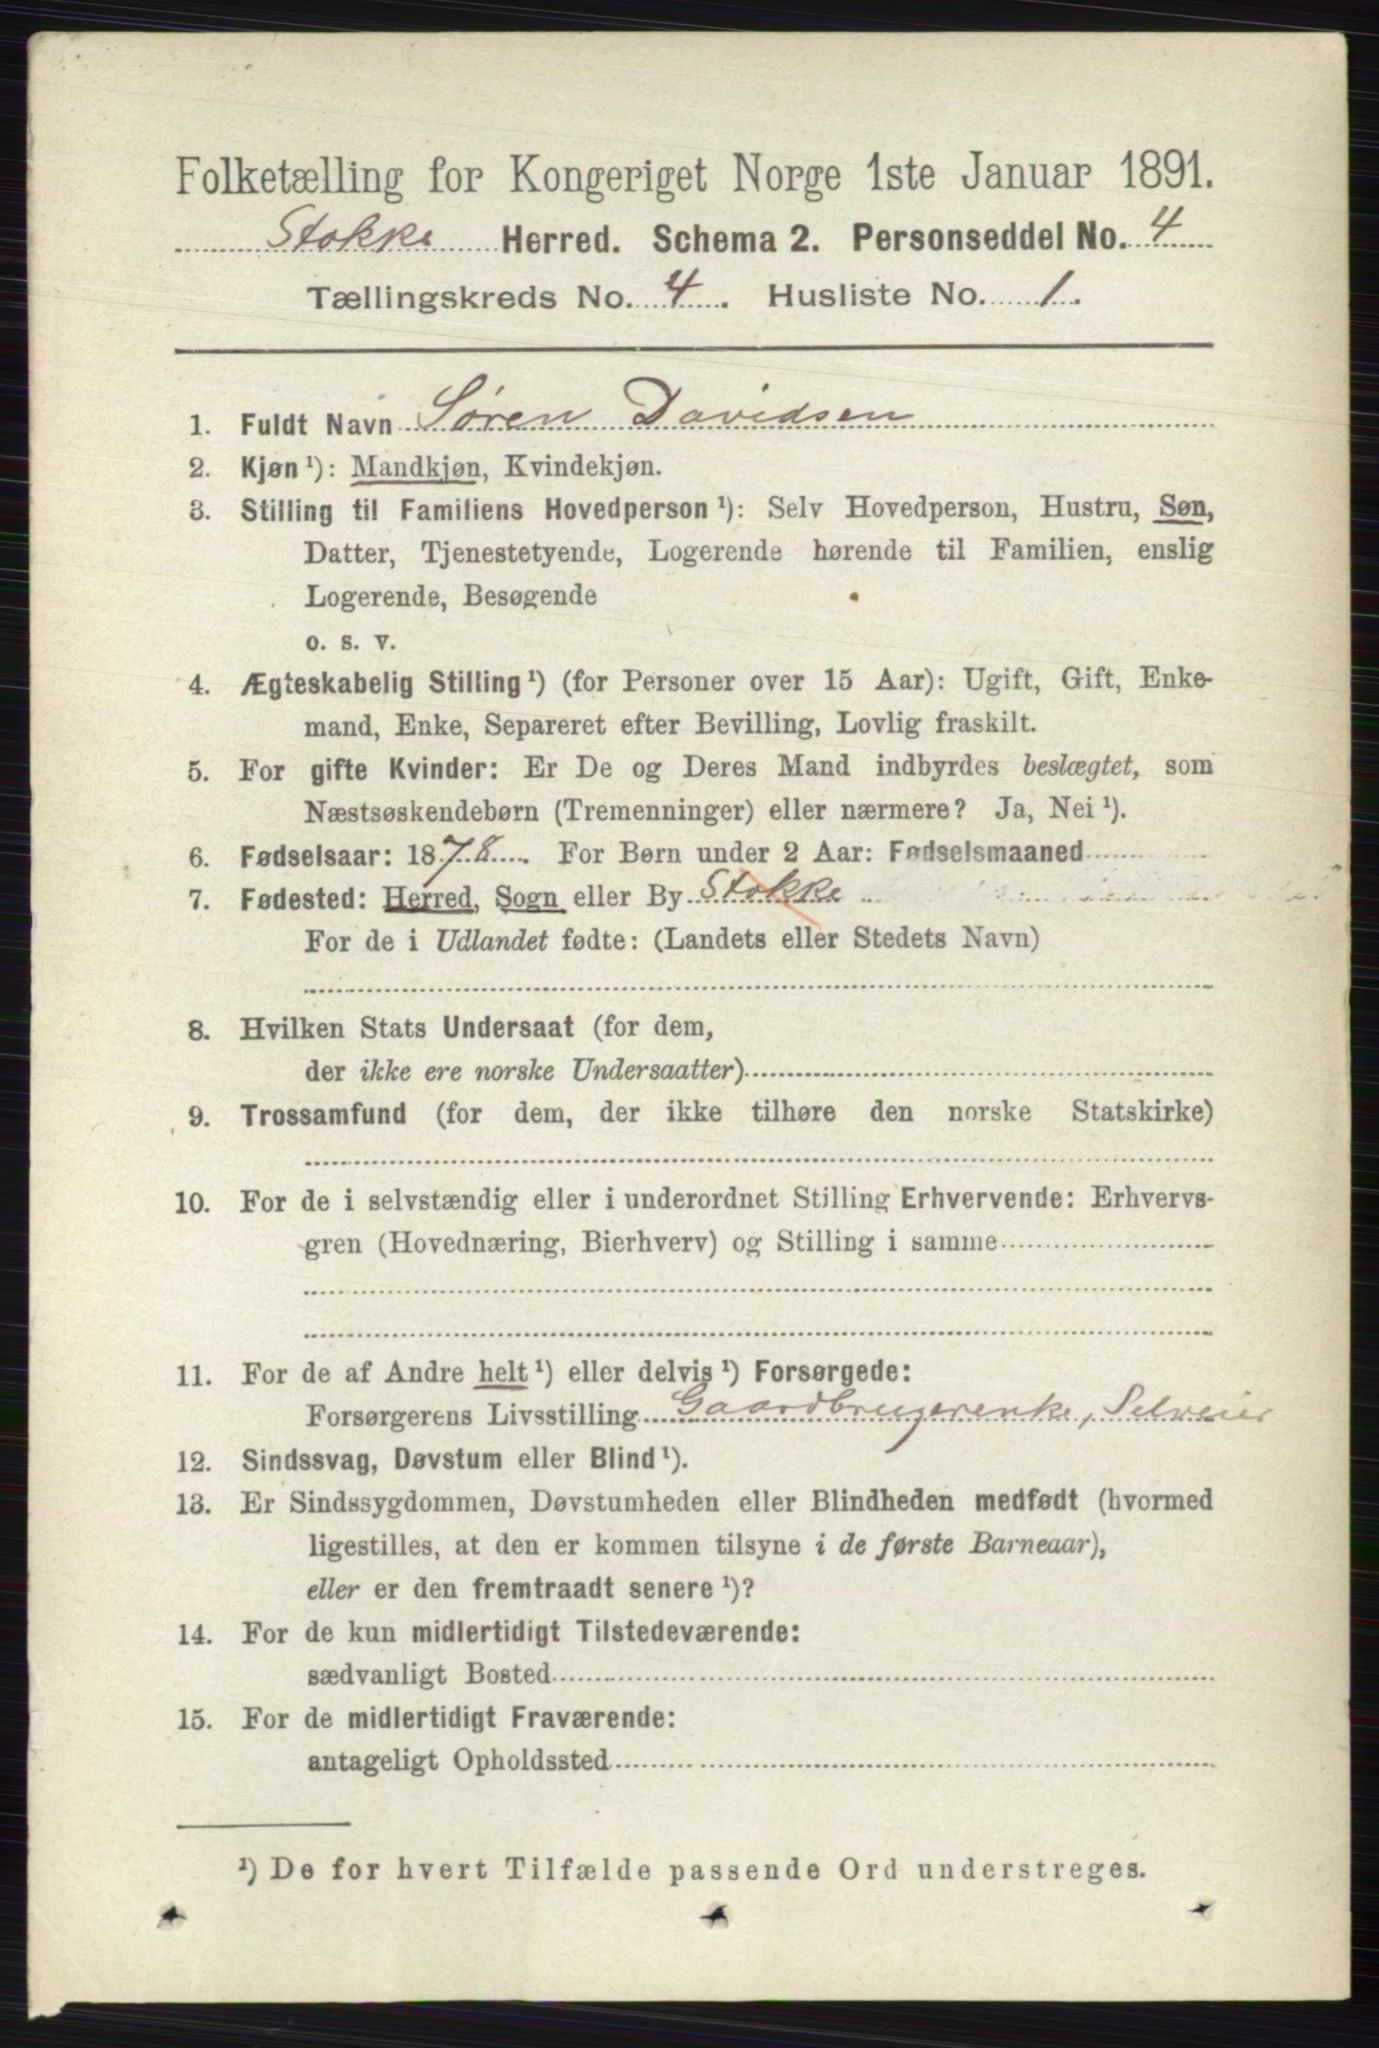 Folketælling for Kongeriget Norge 1ste Januar 1891.
Stokke Herred. Schema 2. Personseddel No. 4
Tællingskreds No. 4. Husliste No. 1.
1. Fuldt Navn Søren Davidsen
2. Kjøn ¹): Mandkjøn, Kvindekjøn.
3. Stilling til Familiens Hovedperson ¹): Selv Hovedperson, Hustru, Søn,
Datter, Tjenestetyende, Logerende hørende til Familien, enslig
Logerende, Besøgende
o. s. v.
4. Ægteskabelig Stilling ¹) (for Personer over 15 Aar): Ugift, Gift, Enke-
mand, Enke, Separeret efter Bevilling, Lovlig fraskilt.
5. For gifte Kvinder: Er De og Deres Mand indbyrdes beslægtet, som
Næstsøskendebørn (Tremenninger) eller nærmere? Ja, Nei ¹).
6. Fødselsaar: 1878. For Børn under 2 Aar: Fødselsmaaned
7. Fødested: Herred, Sogn eller By Stokke
For de i Udlandet fødte: (Landets eller Stedets Navn)
8. Hvilken Stats Undersaat (for dem,
der ikke ere norske Undersaatter)
9. Trossamfund (for dem, der ikke tilhøre den norske Statskirke)
10. For de i selvstændig eller i underordnet Stilling Erhvervende: Erhvervs-
gren (Hovednæring, Bierhverv) og Stilling i samme
11. For de af Andre helt ¹) eller delvis ¹) Forsørgede:
Forsørgerens Livsstilling Gaardbrugerenke, Selveier
12. Sindssvag, Døvstum eller Blind ¹).
13. Er Sindssygdommen, Døvstumheden eller Blindheden medfødt (hvormed
ligestilles, at den er kommen tilsyne i de første Barneaar),
eller er den fremtraadt senere ¹)?
14. For de kun midlertidigt Tilstedeværende:
sædvanligt Bosted
15. For de midlertidigt Fraværende:
antageligt Opholdssted
¹) De for hvert Tilfælde passende Ord understreges.